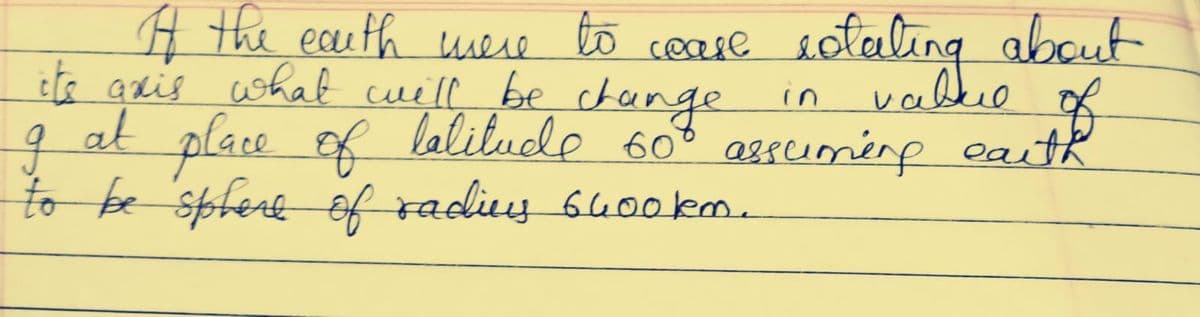 If the earth were to cease rotating about
its axis what will be change in value of
g at place of latitude 60° assuming earth
to be sphere of radius 6400km.